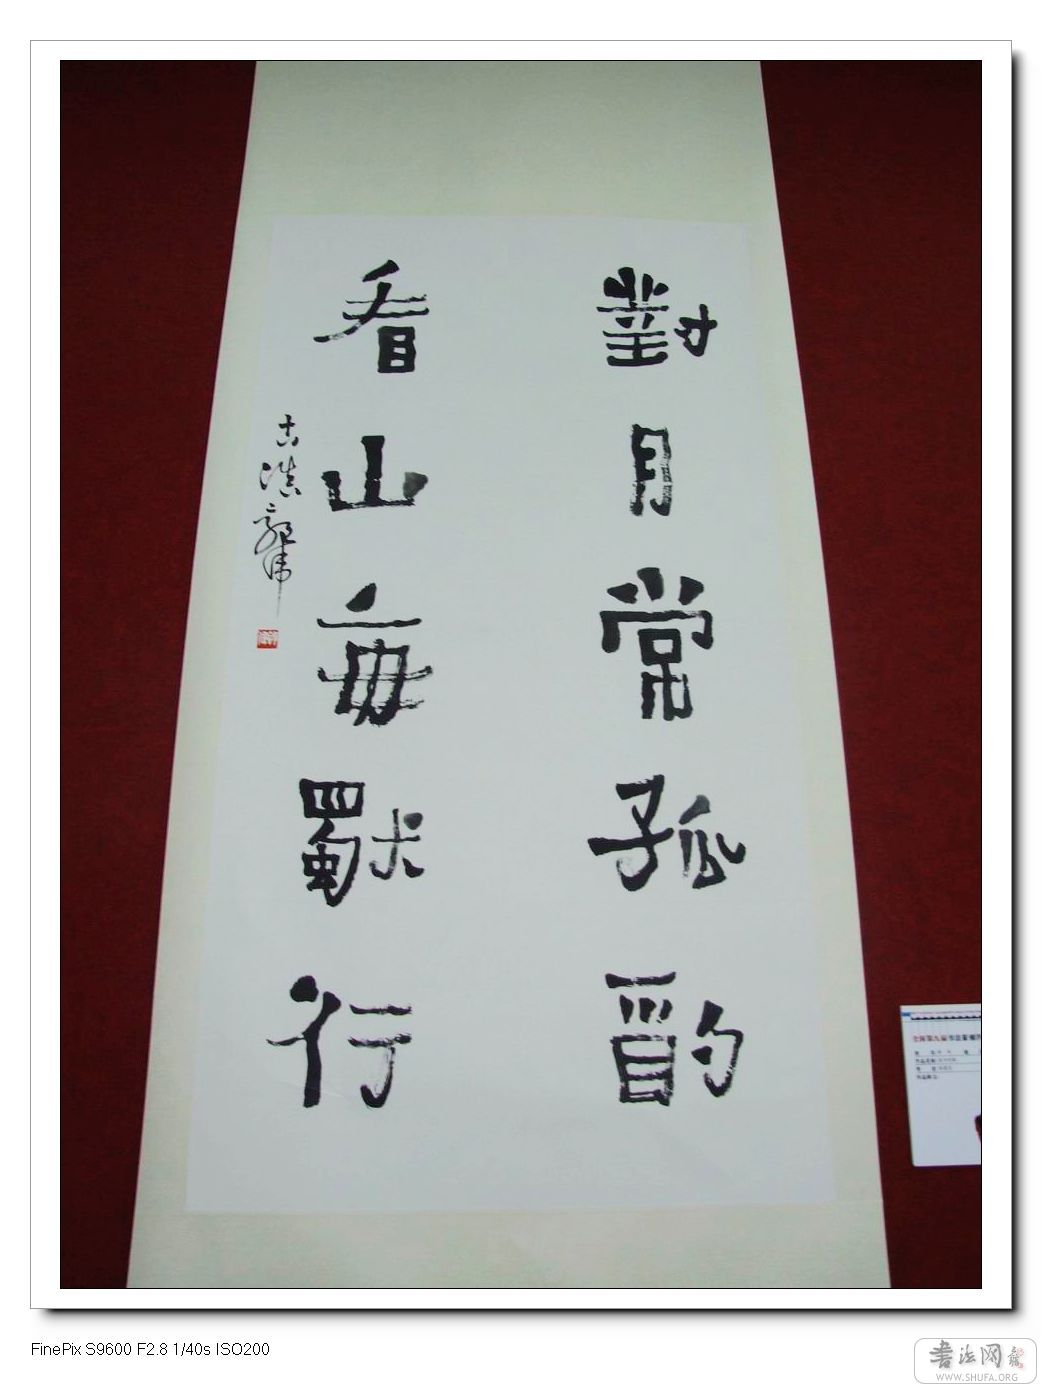 對月常孤酌
看山每獨行
FinePix S9600 F2.8 1/40s ISO200
書法网
WWW.SHUFA.ORG